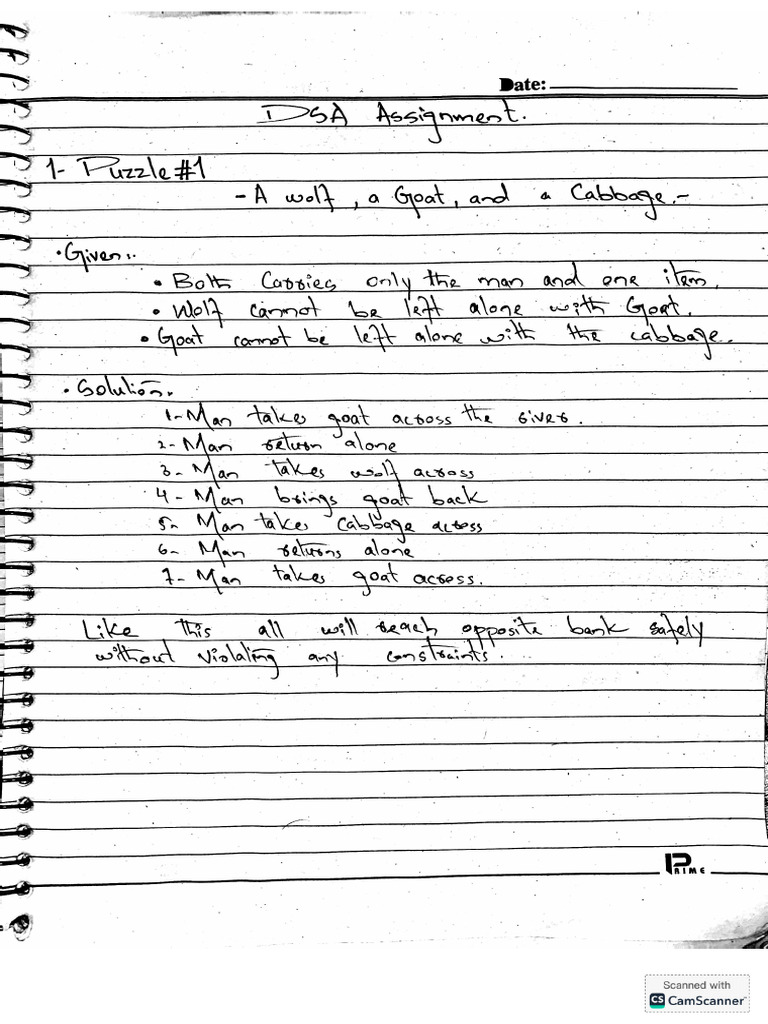 Date:
DSA Assignment.
1- Puzzle#1
- A wolf, a Goat, and a Cabbage.-
• Given:.
• Both Carries only the man and one item.
• Wolf cannot be left alone with Goat.
• Goat cannot be left alone with the cabbage.
• Solution.
1- Man takes goat across the river.
2- Man return alone
3- Man takes wolf across
4- Man brings goat back
5- Man takes Cabbage across
6- Man returns alone
7- Man takes goat across.
Like this all will reach opposite bank safely
without violating any constraints.
PRIME
Scanned with
CS CamScanner